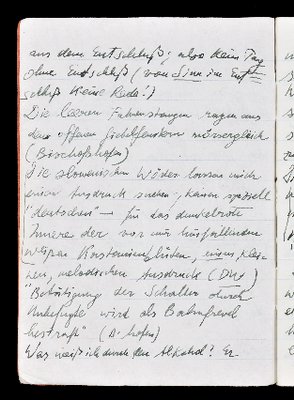 aus dem Entschluß; also kein Tag
ohne Entschluß (von Sinn im Ent-
schluß keine Rede!)
Die leeren Fahnenstangen ragen aus
den offenen Giebelfenstern
(Bischofshofen)
Die slowenischen Wälder lassen mich
einen Ausdruck suchen, keinen speziell
"deutschen" – für das dunkelrote
Innere der vor mir
weißen Kastanienblüten, einen klei-
nen, melodischen Ausdruck
"Betätigung der Schalter durch
Unbefugte wird als Bahnfrevel
bestraft" (B-hofen)
Was weiß ich durch den Alkohol? Er